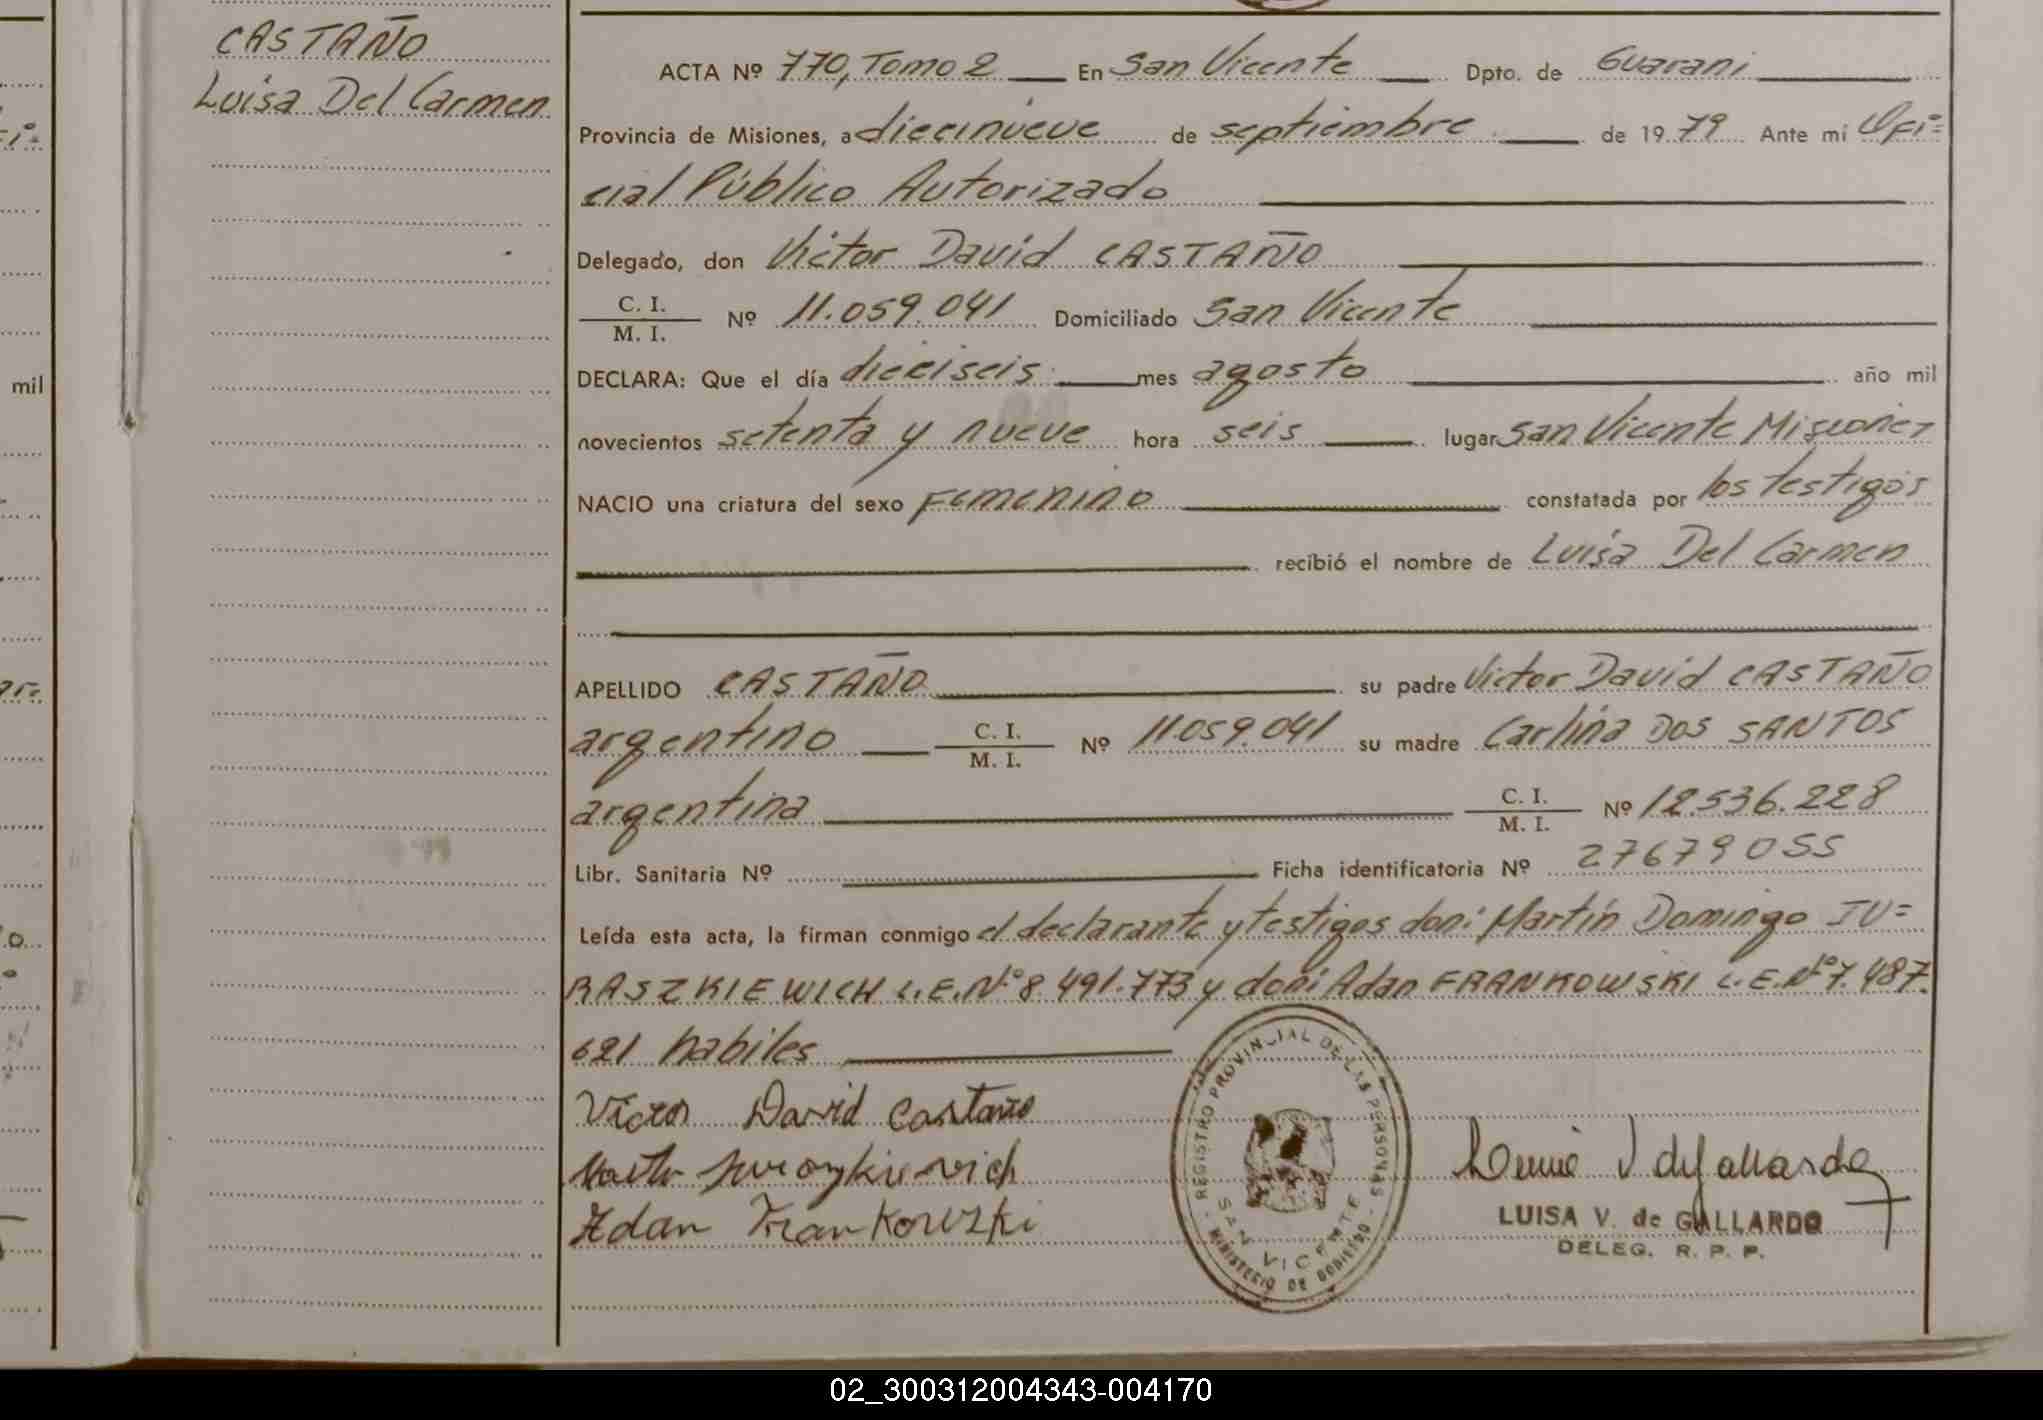 CASTAÑO
Luisa Del Carmen
ACTA Nº 770, Tomo 2 En San Vicente Dpto. de Guarani
Provincia de Misiones, a diecinueve de septiembre de 19 79 Ante mi Ofi=
cial Público Autorizado
Delegado, don Victor David CASTAÑO
C. I.
M. I. Nº 11.059.041 Domiciliado San Vicente
DECLARA: Que el día dieciseis mes agosto año mil
novecientos setenta y nueve hora seis lugar San Vicente Misiones
NACIO una criatura del sexo Femenino constatada por los testigos
recibió el nombre de Luisa Del Carmen
APELLIDO CASTAÑO su padre Victor David CASTAÑO
argentino C. I. M. I. Nº 11.059.041 su madre Carlina DOS SANTOS
argentina C. I. M. I. Nº 12.536.228
Libr. Sanitaria Nº Ficha identificatoria Nº 27679055
Leída esta acta, la firman conmigo el declarante y testigos don: Martín Domingo IU=
RASZKIEWICH L.E.Nº 8.491.773 y don: Adan FRANKOWSKI L.E.Nº 7.487.
621 habiles
Victor David Castaño
Adan Frankowzki
REGISTRO PROVINCIAL DE LAS PERSONAS
SAN VICENTE
MINISTERIO DE GOBIERNO
LUISA V. de GALLARDO
DELEG. R. P. P.
mil
02_300312004343-004170